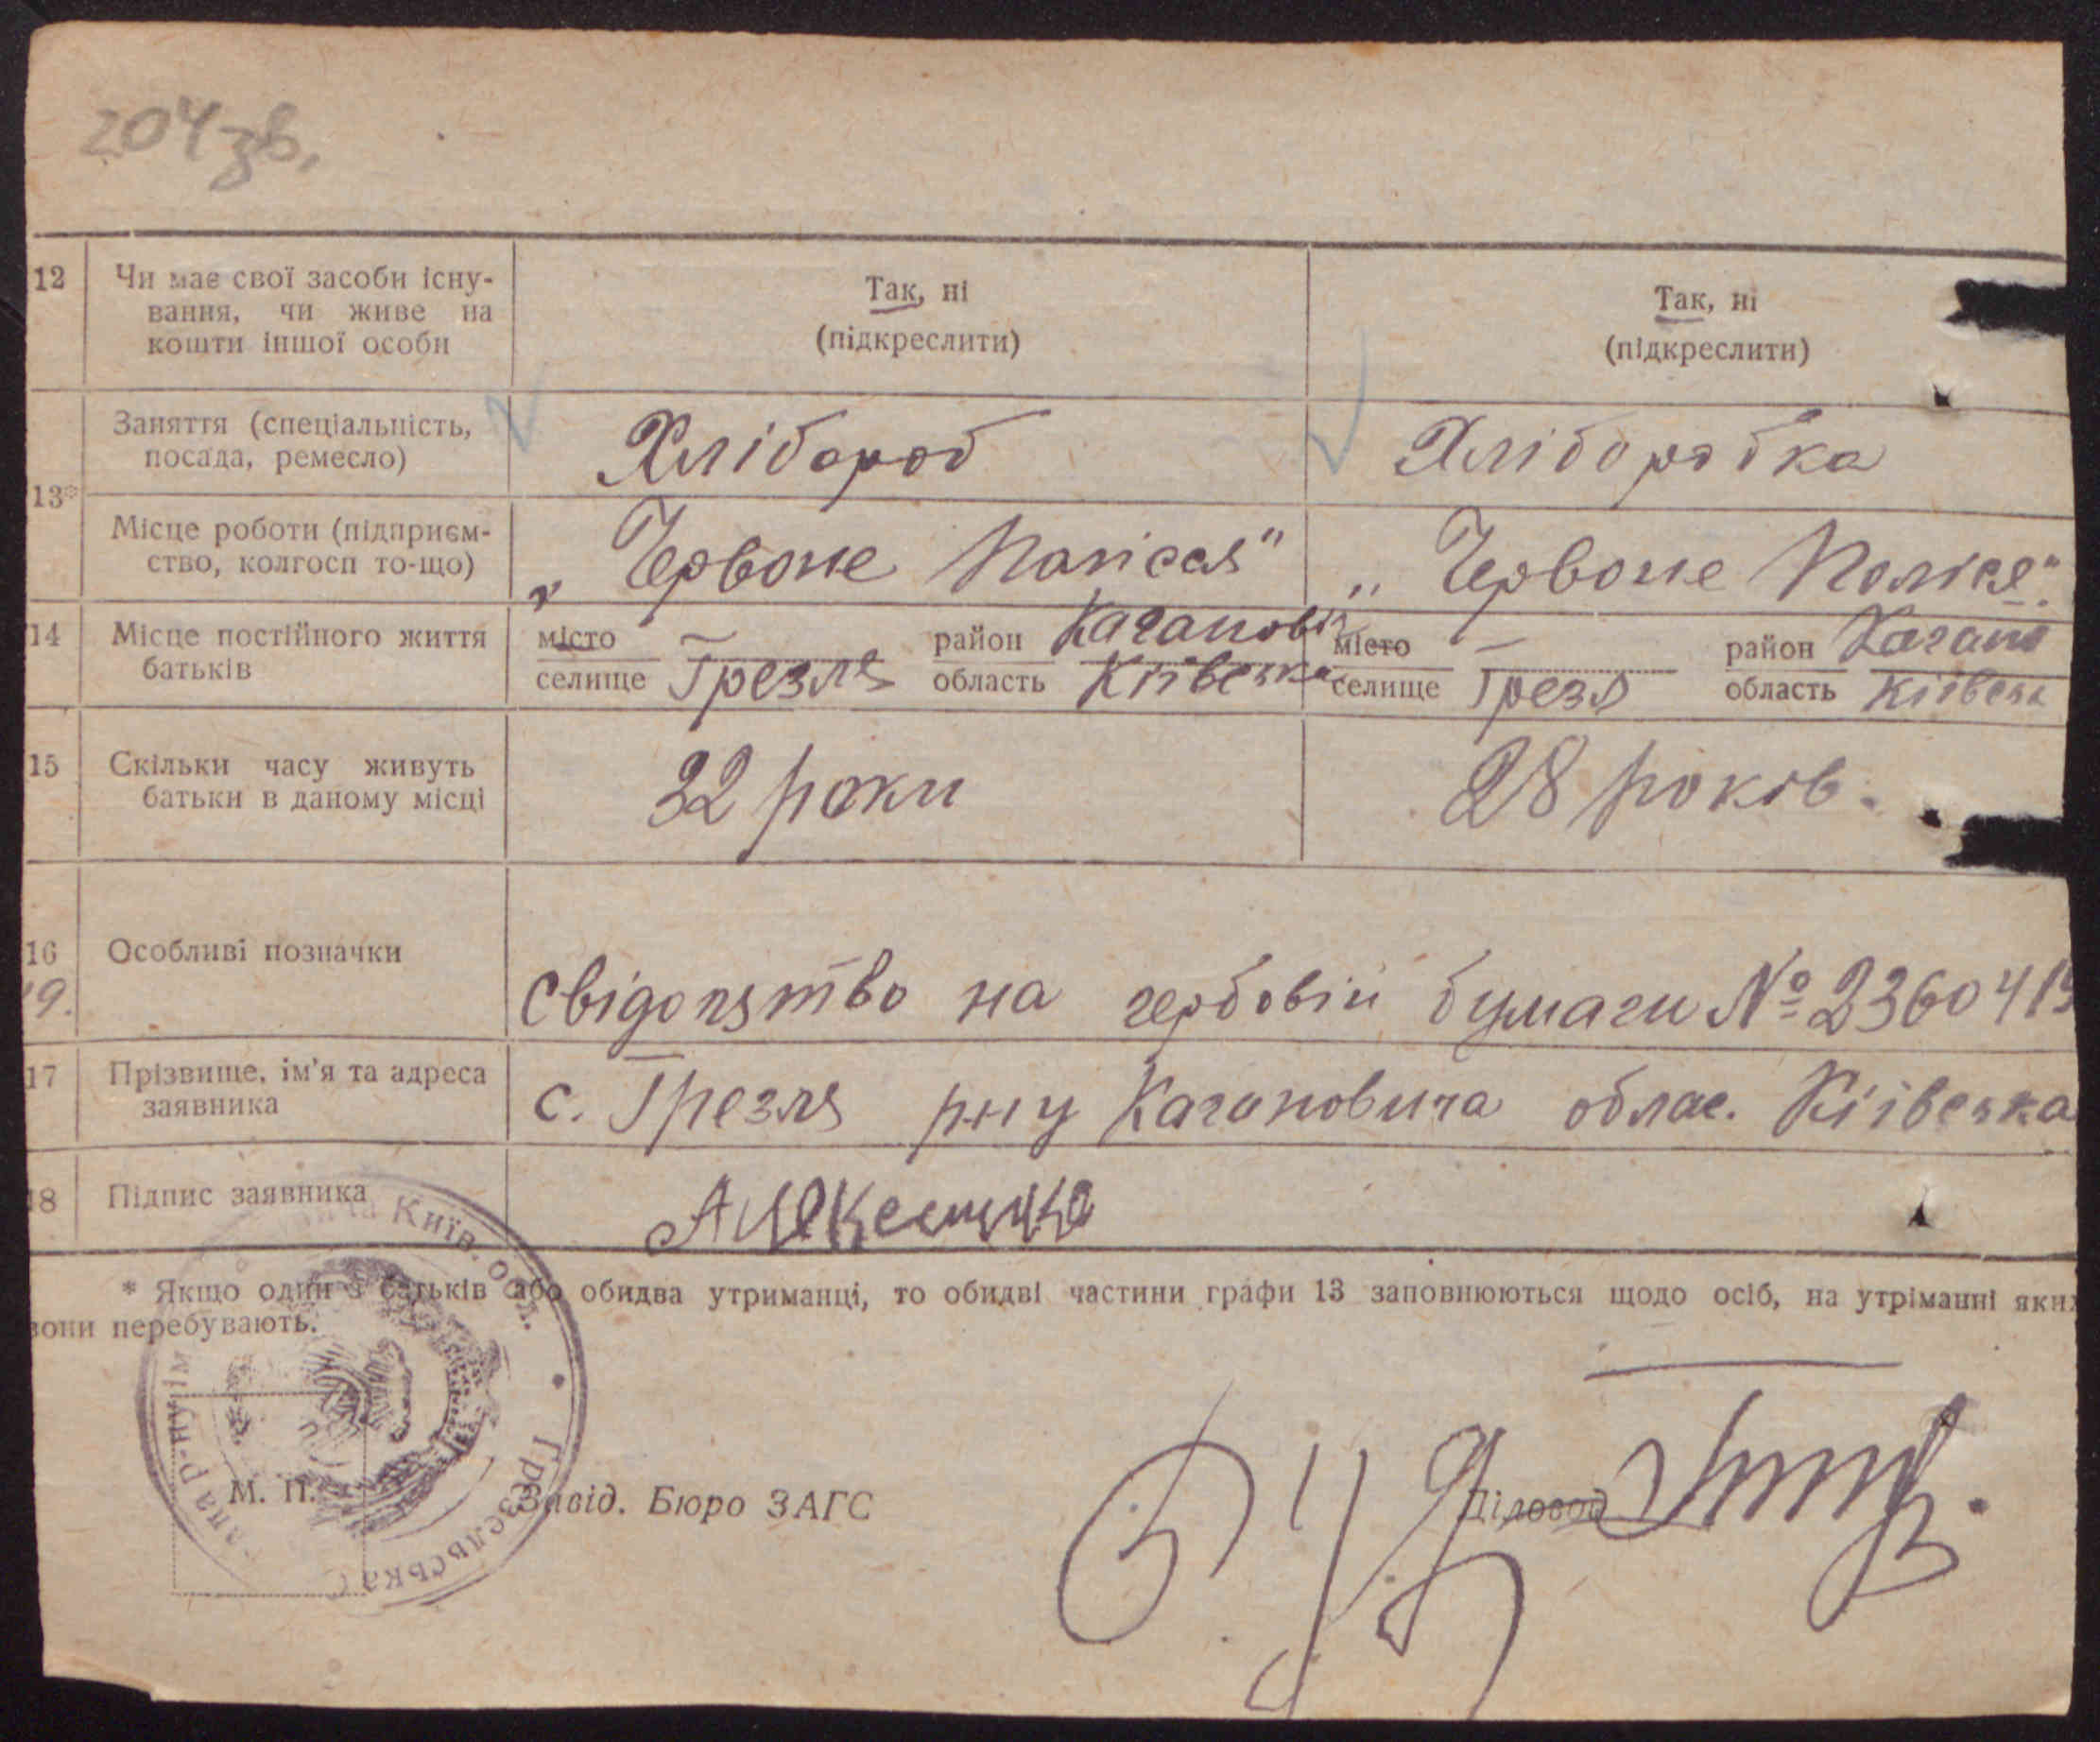 204зв.
12 Чи має свої засоби існу-
вання, чи живе на
кошти іншої особи
Так, ні
(підкреслити)
Так, ні
(підкреслити)
13*
Заняття (спеціальність,
посада, ремесло)
Хлібороб
Хлібороб ка
Місце роботи (підприєм-
ство, колгосп то-що)
„Червоне Полісся"
„Червоне Полісє"
14 Місце постійного життя
батьків
місто — район Каганович
селище Грезля область Київська
місто — район Каган
селище Грезл область Київськ
15 Скільки часу живуть
батьки в даному місці
32 роки
28 років.
16 Особливі позначки
9.
Свідоцтво на гербовій бумаги № 2360419
17 Прізвище, ім'я та адреса
заявника
с. Грезля р-ну Кагановича облас. Київська
18 Підпис заявника
* Якщо один з батьків або обидва утриманці, то обидві частини графи 13 заповнюються щодо осіб, на утріманні яких
вони перебувають.
Київ. обл. • Грезельська
р-ну ім
М. П.
Завід. Бюро ЗАГС
Діловод